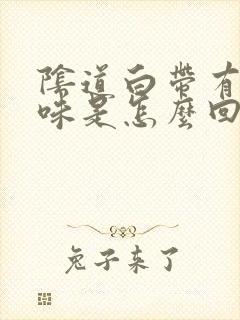 陰道白帶有
味是怎麼回
兔子来了